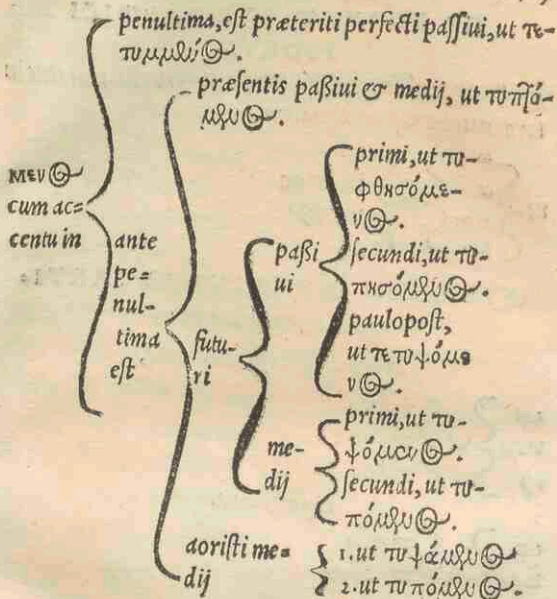 μενος
cum ac=
centu in
penultima, est præteriti perfecti passiui, ut τε-
τυμμένος.
ante
pe=
nul-
tima
est
præsentis paßiui & medij, ut τυπτό-
μενος.
futu-
ri
paßi
ui
primi, ut τυ-
φθησόμε-
νος.
secundi, ut τυ-
πησόμενος.
paulopost,
ut τετυψόμε
νος.
me-
dij
primi, ut τυ-
ψόμενος.
secundi, ut τυ-
πόμενος.
aoristi me=
dij
1. ut τυψάμενος
2. ut τυπόμενος.